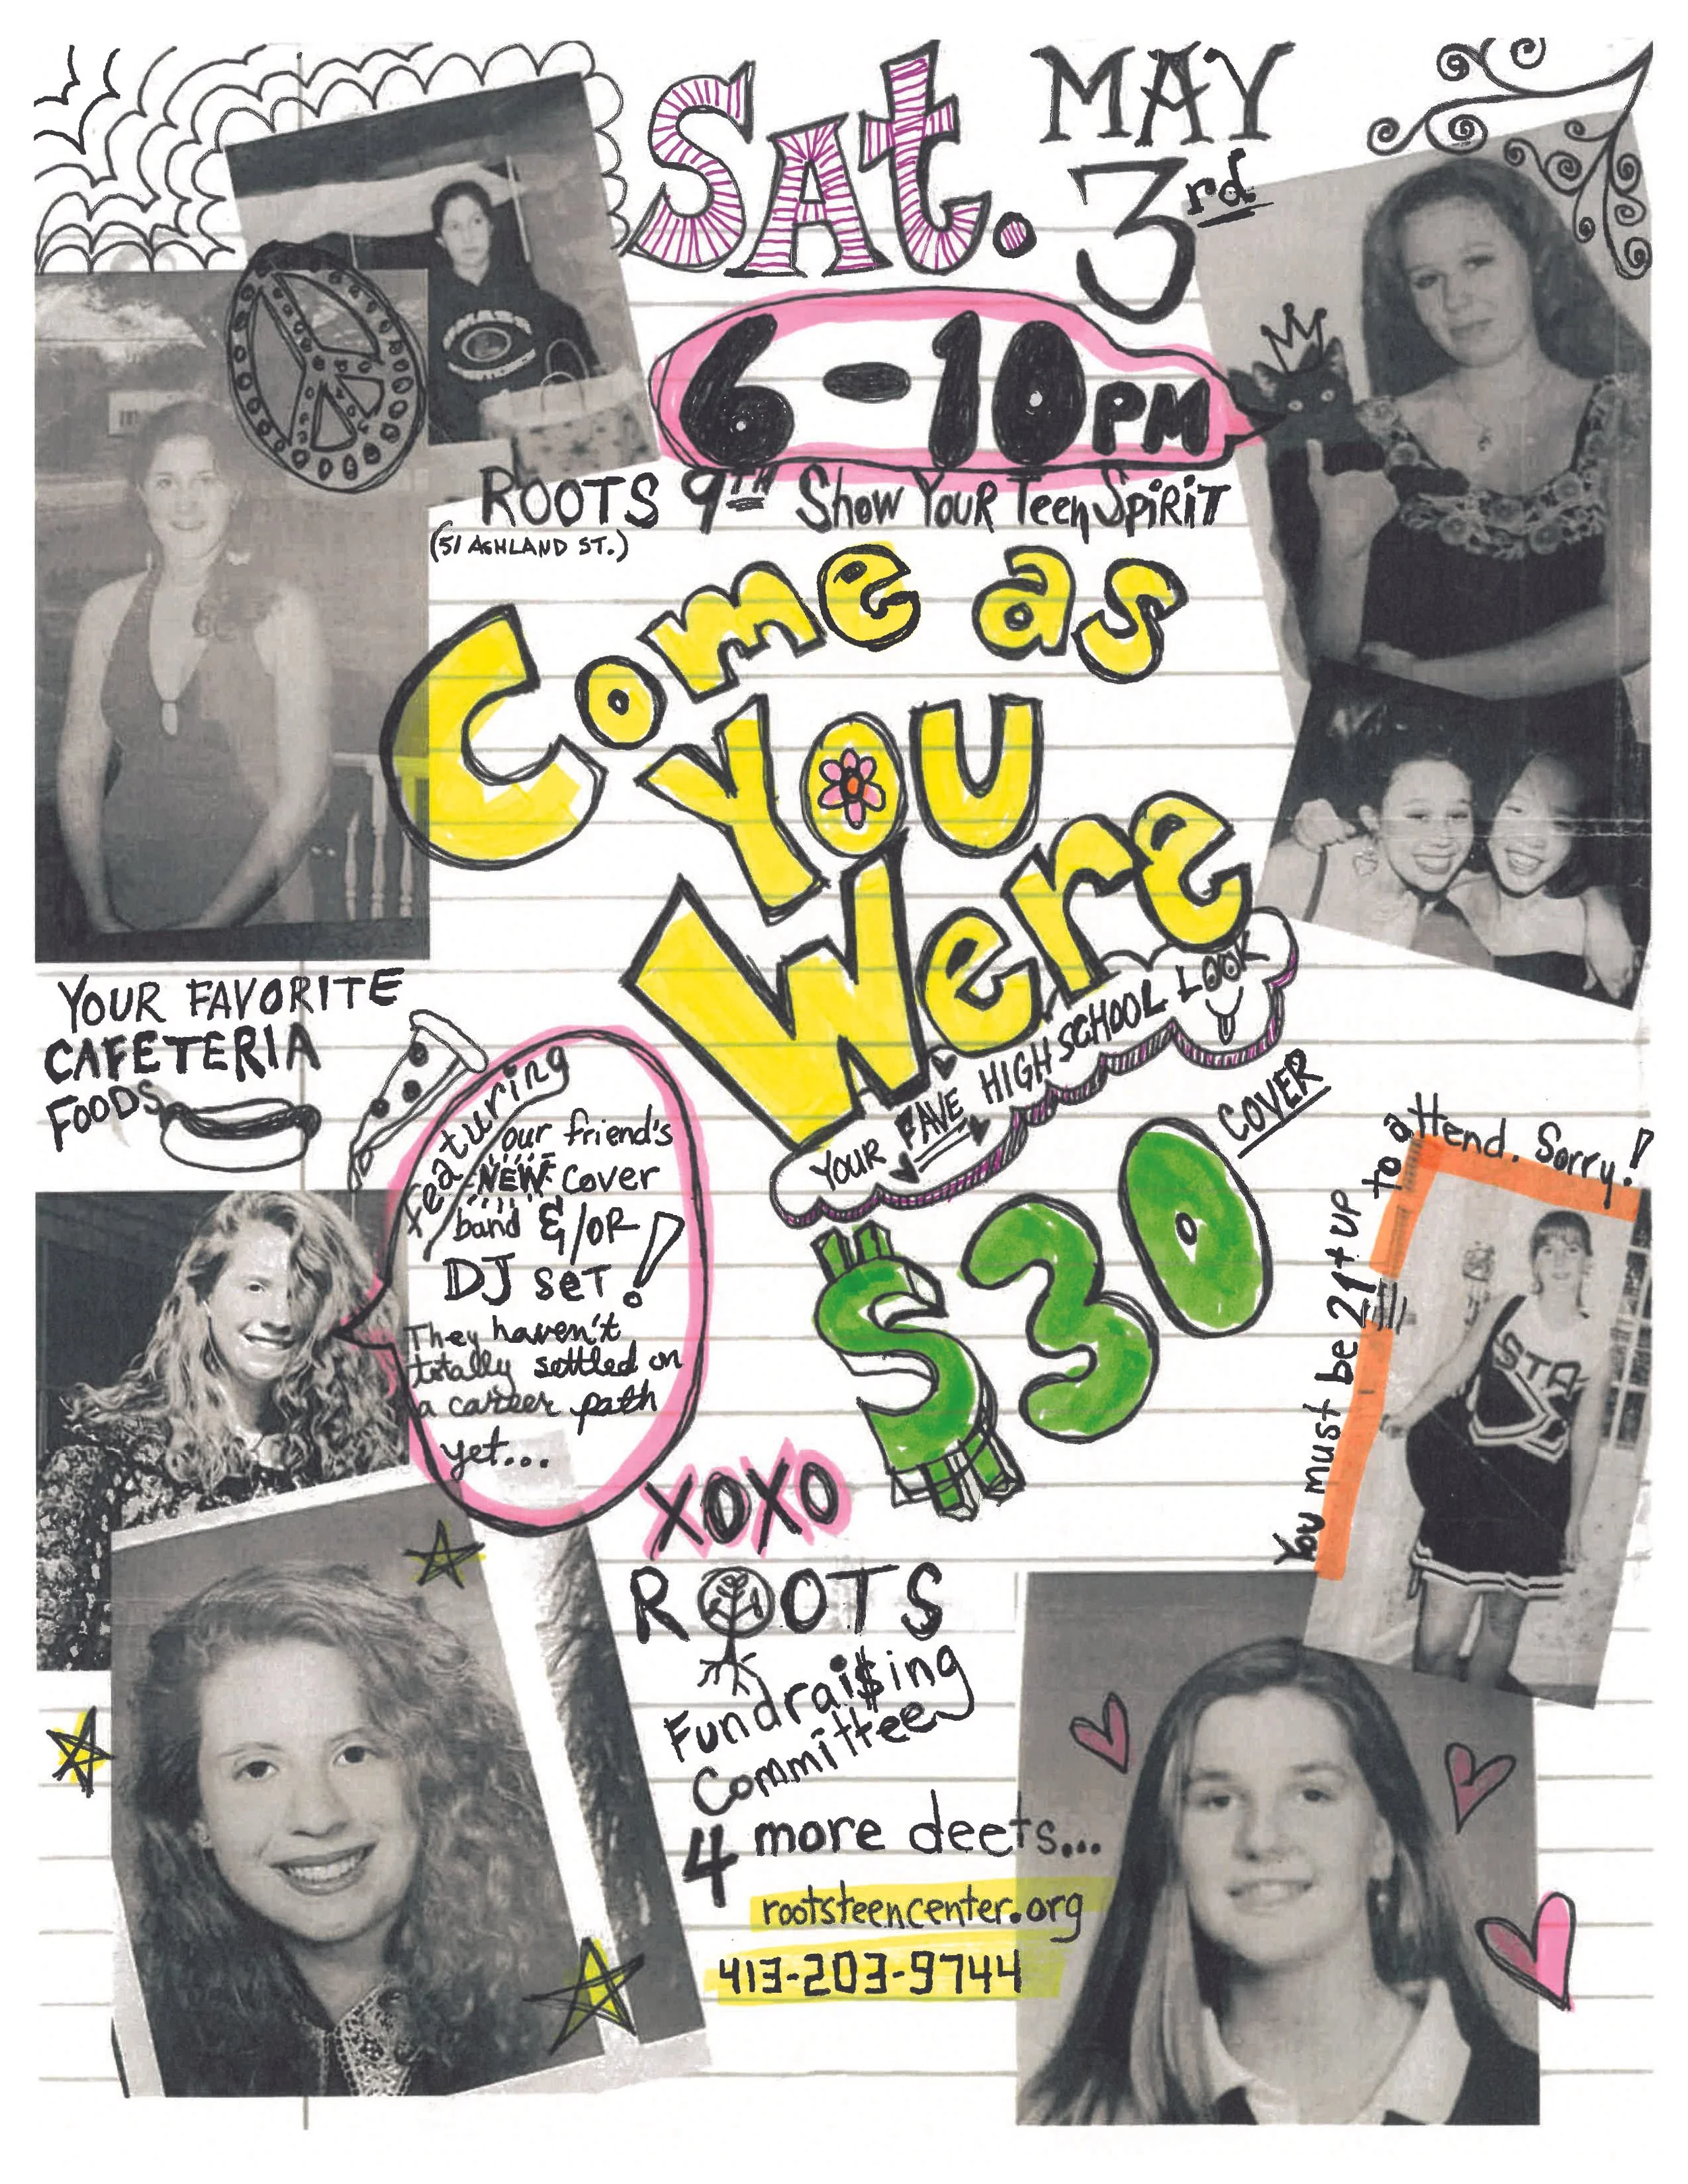 Sat. MAY
3rd
6-10PM
ROOTS 9TH Show Your Teen Spirit
(51 ASHLAND ST.)
Come as
You
Were
YOUR FAVE HIGH SCHOOL LOOK
YOUR FAVORITE
CAFETERIA
FOODS
featuring
our friend's
NEW cover
band &/OR
DJ set!
They haven't
totally settled on
a career path
yet...
$30
COVER
You must be 21+ UP to attend. Sorry!
STA
XOXO
ROOTS
Fundrai$ing
Committee
4 more deets...
rootsteencenter.org
413-203-9744